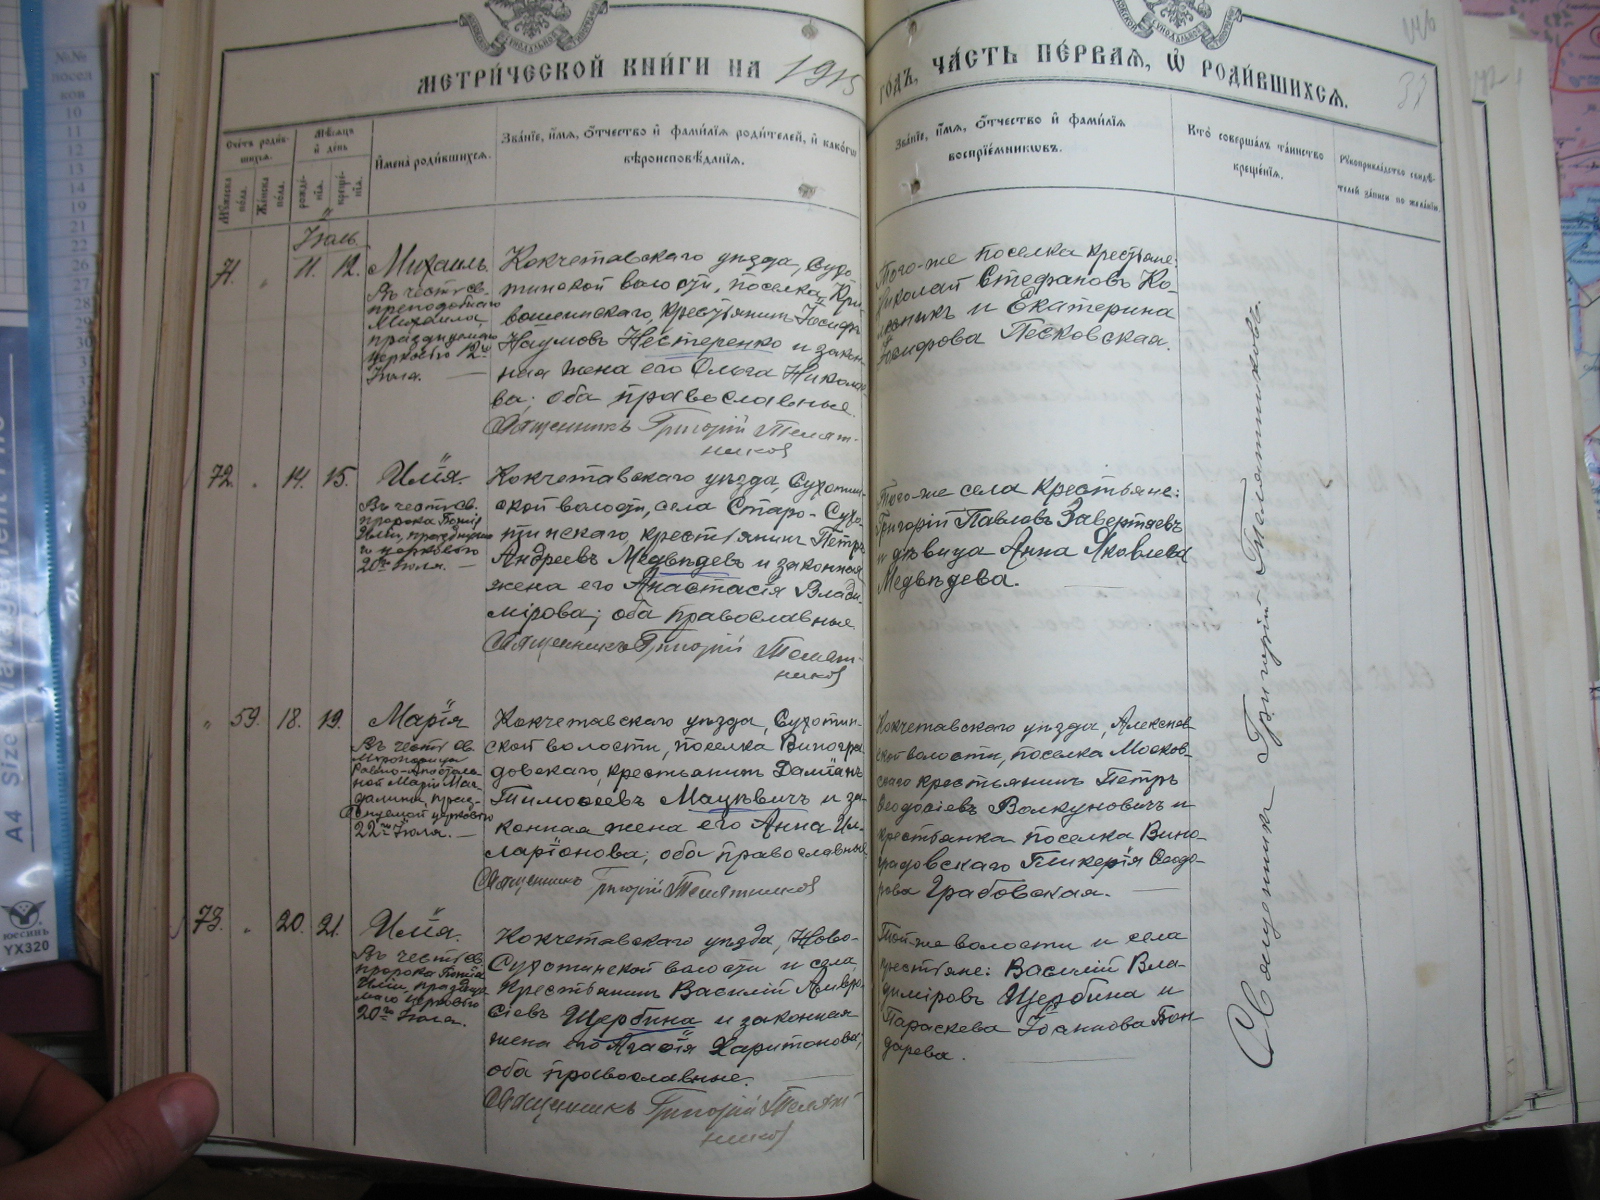 МЕТРИ́ЧЕСКОЙ КНИ́ГИ НА 1915 ГОДЪ, ЧА́СТЬ ПЕ́РВАѦ, Ѡ҆ РОДИ́ВШИХСѦ.
Сче́тъ роди́вшихсѧ.
Мꙋ́жеска по́ла.
Же́нска по́ла.
Мѣ́сѧцъ и҆ де́нь
рожде́нїѧ.
креще́нїѧ.
И҆мена̀ роди́вшихсѧ.
Зва́нїе, и҆́мѧ, ѻ҆́тчество и҆ фами́лїѧ роди́телей, и҆ како́гѡ
вѣроисповѣ́данїѧ.
Зва́нїе, и҆́мѧ, ѻ҆́тчество и҆ фами́лїѧ
воспрїе́мникѡвъ.
Кто̀ соверша́лъ та́инство
креще́нїѧ.
Рꙋкоприкла́дство свидѣ́телей за́писи по жела́нїю.
Іюль
71. „ 11. 12. Михаилъ.
Въ честь св.
преподобнаго
Михаила,
празднуемаго
церковью 12го
Іюля.
Кокчетавскаго уѣзда, Сухо-
тинской волости, поселка Кри-
вошеинскаго, крестьянинъ Іосифъ
Наумовъ Нестеренко и закон-
ная жена его Ольга Николае-
ва; оба православные.
Священникъ Григорій Телят-
никовъ
Того-же поселка крестьяне:
Николай Стефановъ Ко-
и Екатерина
Іосифова Песковская.
72. „ 14. 15. Илія.
Въ честь св.
пророка Божія
Иліи, празднуемаго
церковью
20го Іюля.
Кокчетавскаго уѣзда, Сухотин-
ской волости, села Старо-Сухо-
тинскаго, крестьянинъ Петръ
Андреевъ Медвѣдевъ и законная
жена его Анастасія Влади-
мірова; оба православные
Священникъ Григорій Телят-
никовъ
Того-же села крестьяне:
Григорій Павловъ Завертяевъ
и дѣвица Анна Яковлева
Медвѣдева.
„ 59. 18. 19. Марія
Въ честь св.
Мѵроносицы
Равно-Апостоль-
ной Маріи Маг-
далины, праз-
днуемой церковью
22го Іюля.
Кокчетавскаго уѣзда, Сухотин-
ской волости, поселка Виногра-
довскаго, крестьянинъ Даміанъ
Тимоѳеевъ Мацкевичъ и за-
конная жена его Анна Ил-
ларіонова; оба православные
Священникъ Григорій Телятниковъ
Кокчетавскаго уѣзда, Алексеев-
ской волости, поселка Москов-
скаго крестьянинъ Петръ
Ѳеодосіевъ Волкуновичъ и
крестьянка поселка Вино-
градовскаго Гликерія Ѳеодо-
рова Грабовская.
73. „ 20. 21. Илія.
Въ честь св.
пророка Божія
Иліи, празднуе-
маго церковью
20го Іюля.
Кокчетавскаго уѣзда, Ново-
Сухотинской волости и села,
крестьянинъ Василій Амвро-
сіевъ Щербина и законная
жена его Агаѳія Харитонова,
оба православные.
Священникъ Григорій Телят-
никовъ
Той-же волости и села
крестьяне: Василій Вла-
диміровъ Щербина и
Параскева Іоаннова Бон-
дарева.
Священникъ Григорій Телятниковъ.
№№
посел
ков
10
11
12
13
14
19
21
22
26
27
28
A4 Size
юесинь
YX320